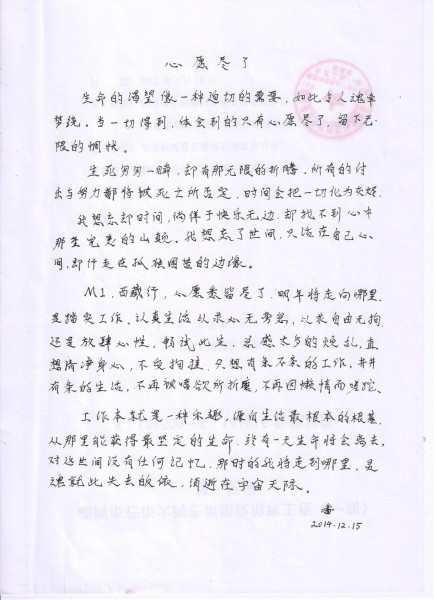 心愿尽了
生命的渴望像一种迫切的需要,如此令人魂牵
梦绕。当一切得到,体会到的只有心愿尽了,留下无
限的惆怅。
生死匆匆一瞬,却有那无限的折腾,所有的付
出与努力都将被死亡所否定,时间会把一切化为灰烬.
我想忘却时间,徜徉于快乐无边,却找不到心中
那至完美的山巅。我想忘了世间,只活在自己心
间,却行走在孤独困苦的边缘。
M1,西藏行,心愿悉皆尽了.明年将走向哪里.
是踏实工作、认真生活以求心无旁骛,以求自由无拘
还是放肆心性,畅试此生,灵感太多的烦乱,直
想清净身心,不受拘挂.只想有条不紊的工作,井井
有条的生活,不再被嗜欲所折磨,不再因懒惰而蹉跎.
工作本就是一种乐趣,源自生活最根本的根基,
从那里能获得最坚定的生命,终有一天生命将会离去,
对这世间没有任何记忆,那时的我将走到哪里,灵
魂就此失去,消逝在宇宙天际。
2014.12.15